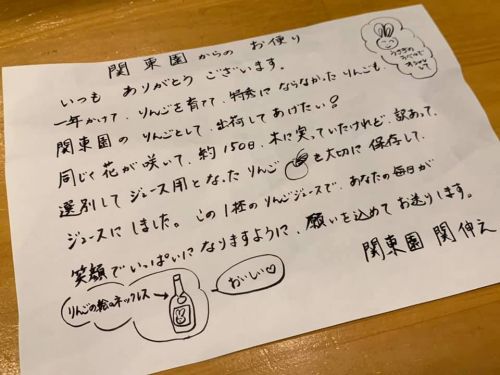 関東園からの お便り
いつも ありがとう ございます。
一年かけて、りんごを育てて、特秀にならなかった りんごも、
関東園の りんごとして、出荷してあげたい!
同じく花が咲いて、約150日、木に実っていたけれど、訳あって、
選別して ジュース用となった りんご を大切に 保存して、
ジュースに しました。この1杯のりんごジュースで、あなたの毎日が
笑顔で いっぱいに なりますように、願いを込めて お送りします。
関東園 関 伸
りんごの絵のネックレス
おいしい♡
うさぎの
して